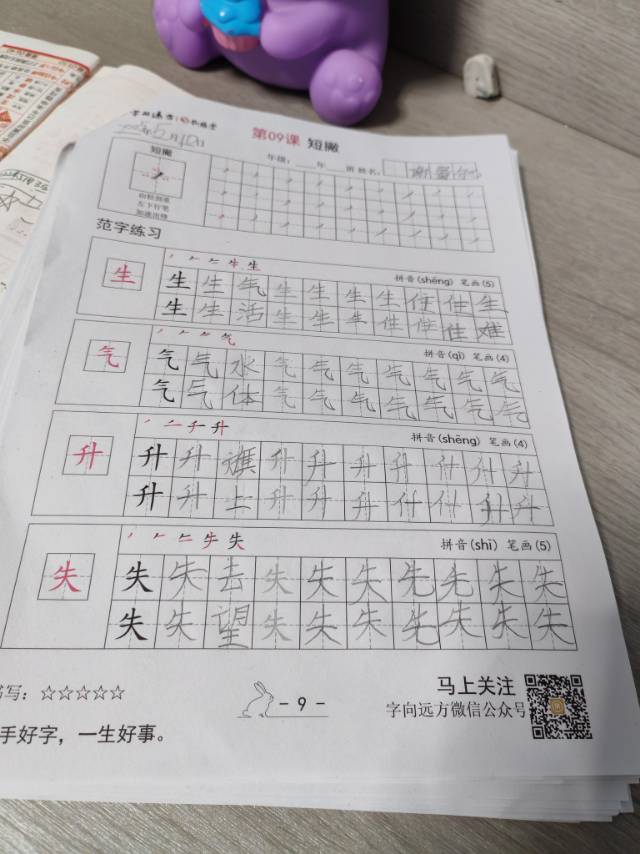 第09课 短撇
年级：年 班 姓名：
短撇
左下行笔
范字练习
生
拼音(shēng) 笔画(5)
生 生 气 生 生 生 生
生 生 活 生 生
气
拼音(qì) 笔画(4)
气 气 水 气 气 气 气 气 气 气
气 气 体 气 气 气 气 气 气 气
升
拼音(shēng) 笔画(4)
升 升 旗 升 升 升 升 升 升 升
升 升 上 升 升 升 升 升 升 升
失
拼音(shī) 笔画(5)
失 失 去 失 失 失 失 失 失 失
失 失 望 失 失 失 失 失 失 失
书写：☆☆☆☆☆
- 9 -
马上关注
字向远方微信公众号
手好字，一生好事。